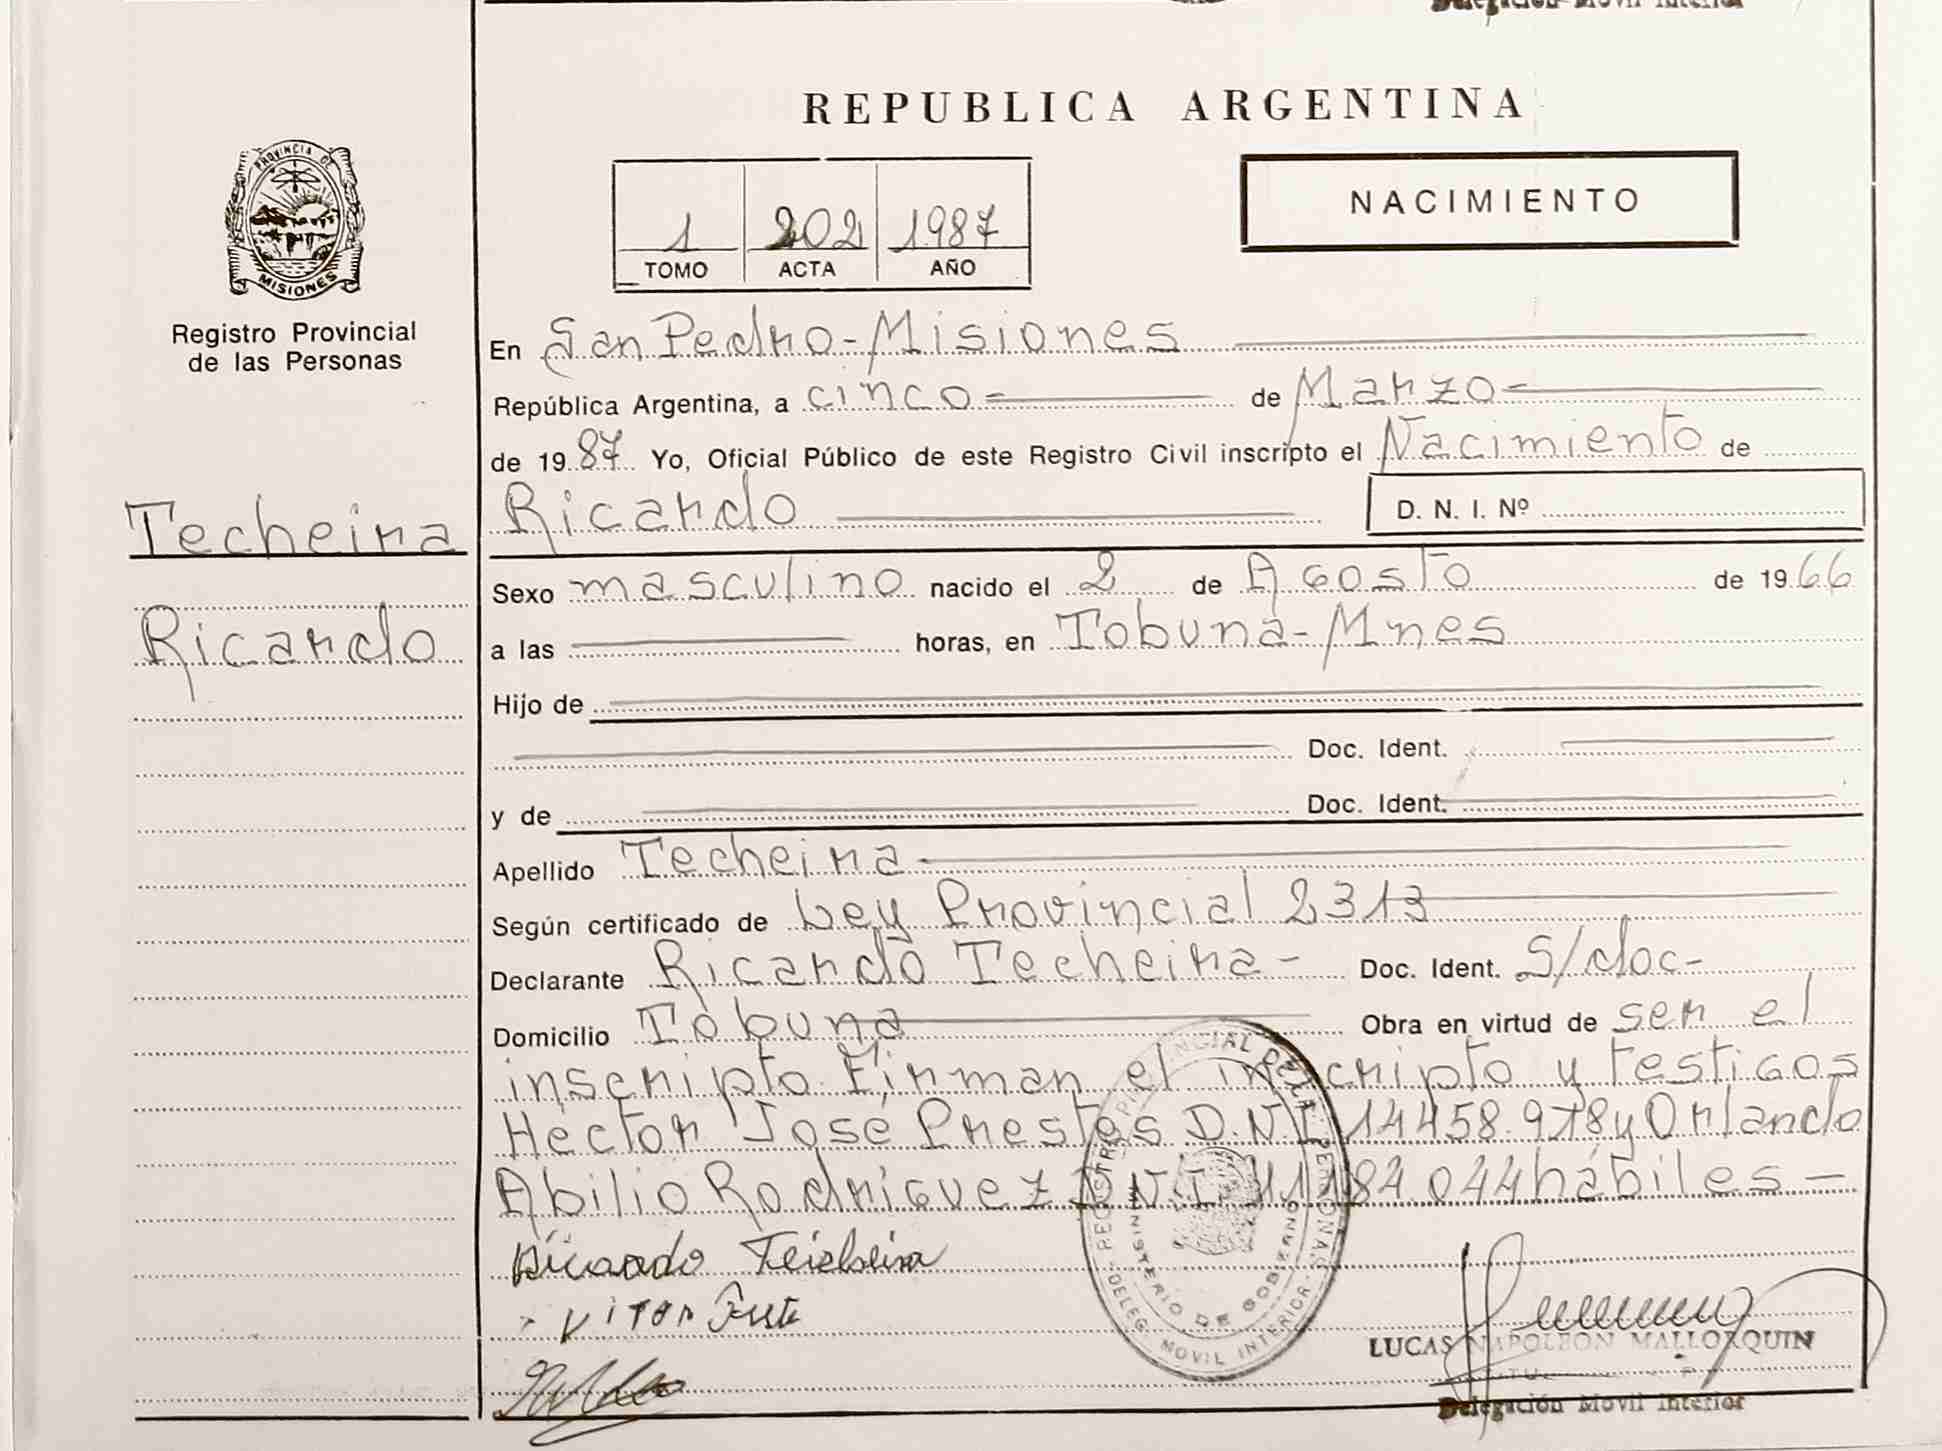 Delegación Movil Interior
REPUBLICA ARGENTINA
PROVINCIA DE
MISIONES
Registro Provincial
de las Personas
1 202 1987
TOMO ACTA AÑO
NACIMIENTO
En San Pedro-Misiones
República Argentina, a cinco- de Marzo-
de 1987 Yo, Oficial Público de este Registro Civil inscripto el Nacimiento de
Techeira
Ricardo
Ricardo D. N. I. Nº
Sexo masculino nacido el 2 de Agosto de 1966
a las horas, en Tobuna-Mnes
Hijo de
Doc. Ident.
y de Doc. Ident.
Apellido Techeira-
Según certificado de Ley Provincial 2313
Declarante Ricardo Techeira- Doc. Ident. S/doc-
Domicilio Tobuna Obra en virtud de ser el
inscripto. Firman el inscripto y testigos
Héctor José Prestes D.N.I. 14458.978 y Orlando
Abilio Rodríguez D.N.I. 11184.044 hábiles-
Ricardo
REGISTRO PROVINCIAL DE LAS PERSONAS
MINISTERIO DE GOBIERNO
-DELEG. MOVIL INTERIOR-
LUCAS NAPOLEON MALLORQUIN
Delegación Movil Interior